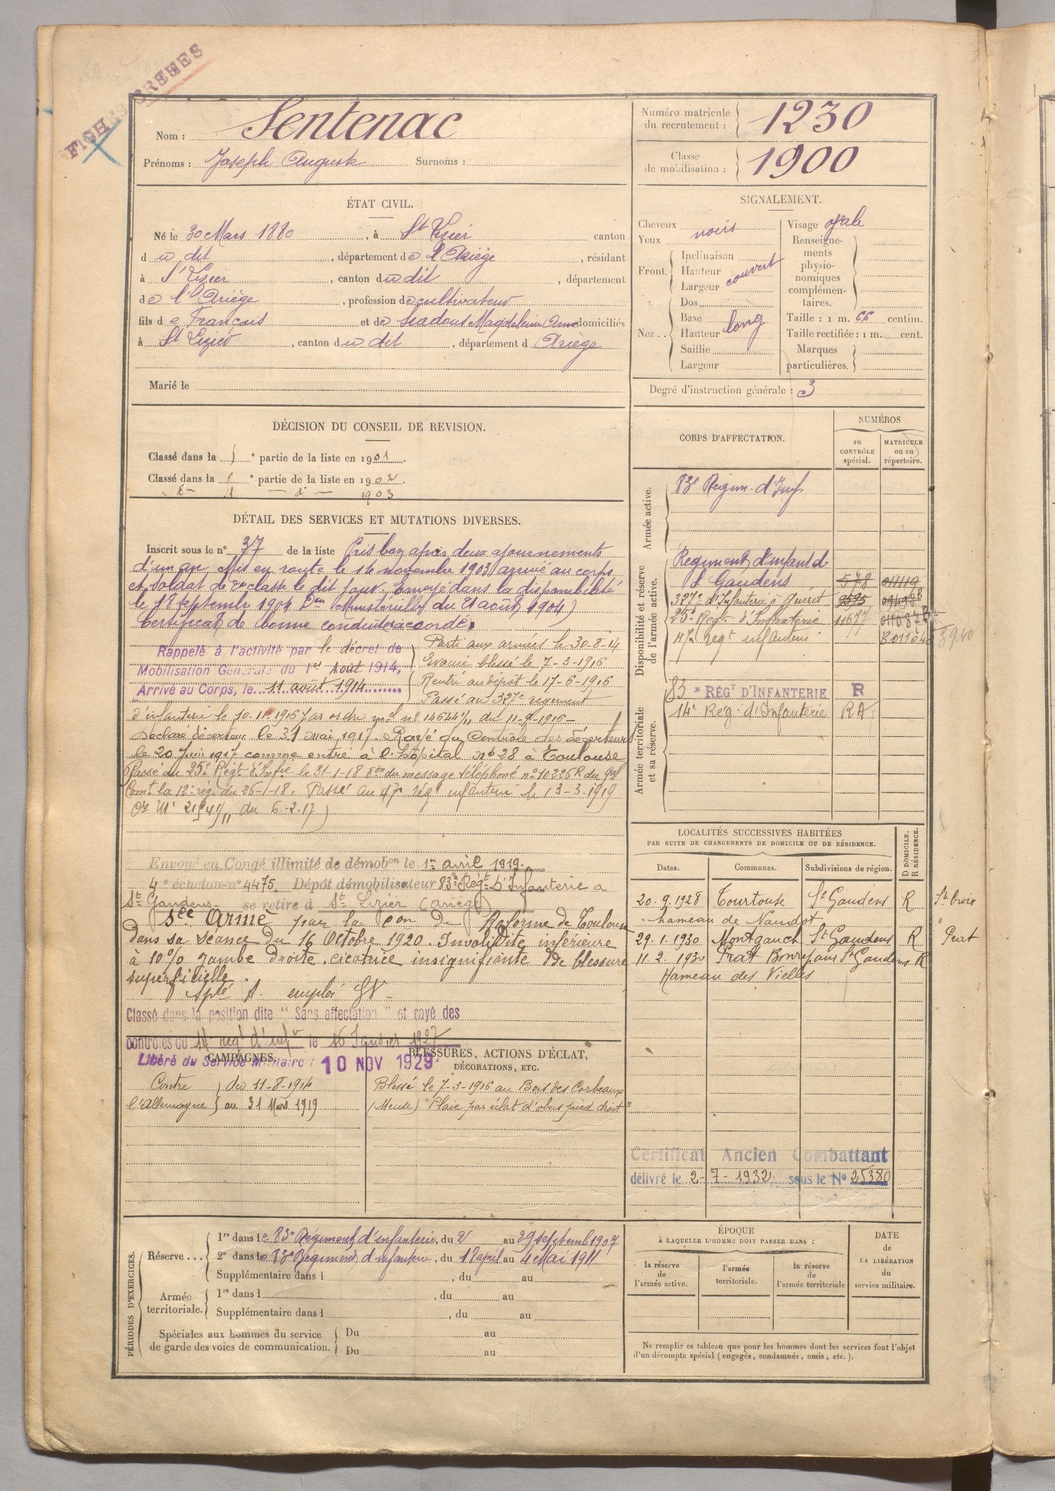 FICHES CRÉÉES
Nom : Sentenac
Prénoms : Joseph Auguste Surnoms :
Numéro matricule du recrutement : 1230
Classe de mobilisation : 1900
ÉTAT CIVIL.
Né le 30 Mars 1880, à St Lizier canton
du dit, département de l'Ariège, résidant
à St Lizier, canton du dit, département
de l'Ariège, profession de cultivateur
fils de François et de Madeleine domiciliés
à St Lizier, canton du dit, département d Ariège
Marié le
SIGNALEMENT.
Cheveux noirs
Yeux
Front. Inclinaison
Hauteur couvert
Largeur
Nez. Dos
Base
Hauteur long
Saillie
Largeur
Visage ovale
Renseignements physionomiques complémentaires.
Taille : 1 m. 66 centim.
Taille rectifiée : 1 m. cent.
Marques particulières.
Degré d'instruction générale : 3
DÉCISION DU CONSEIL DE REVISION.
Classé dans la 1 e partie de la liste en 1901.
Classé dans la 1 e partie de la liste en 1902.
d° 1 d° 1903
DÉTAIL DES SERVICES ET MUTATIONS DIVERSES.
Inscrit sous le n° 37 de la liste Pris bon après deux ajournements
d'un an. Mis en route le 14 novembre 1903, arrivé au corps
et soldat de 2e classe le dit jour. Envoyé dans la disponibilité
le 18 septembre 1904 (Don Ministérielle du 21 août 1904)
Certificat de bonne conduite accordé.
Rappelé à l'activité par le décret de
Mobilisation Générale du 1er Août 1914,
Arrivé au Corps, le 11 août 1914
Parti aux armées le 30-8-14
Evacué blessé le 7-3-1916
Rentré au dépôt le 17-6-1916
Passé au 327e régiment
d'infanterie le 10-1916 par ordre n° 14644/ du 11-9-1916
Déclaré déserteur le 31 mai 1917. Rayé du Contrôle des déserteurs
le 20 juin 1917 comme entré à l'hôpital n° 28 à Toulouse
Passé au 25e Régt d'Infie le 31-1-18 du message téléphoné n° 10226 R du Gal
Comt la 12e rég. du 26-1-18. Passé au 47e rég. infanterie le 13-3-1919
du 6-2-17)
Envoyé en Congé illimité de démobon le 1er avril 1919.
4e échelon n° 4475 Dépôt démobilisateur 83e Régt d'Infanterie à
St Gaudens se retire à St Lizier (Ariège)
Sce Armé par la con de Réforme de Toulouse
dans sa séance du 16 Octobre 1920. Invalidité inférieure
à 10% jambe droite. cicatrice insignifiante de blessure
superficielle.
emploi
Classé dans la position dite "Sans affectation" et rayé des
contrôles du 14e rég. d'infie le 16 Janvier 1927
Libéré du Service Militaire : 10 NOV 1929
CORPS D'AFFECTATION.
NUMÉROS
au CONTRÔLE spécial.
MATRICULE ou au répertoire.
Armée active.
83e Régim. d'Inf
Disponibilité et réserve de l'armée active.
Régiment d'infant de
St Gaudens 578
327e d'Infanterie à Guéret 9595
25e Régt d'Infanterie 11677
47e Régt infanterie
Armée territoriale et sa réserve.
83e RÉGT D'INFANTERIE R
14e Rég. d'Infanterie RA
LOCALITÉS SUCCESSIVES HABITÉES
PAR SUITE DE CHANGEMENTS DE DOMICILE OU DE RÉSIDENCE.
Dates. Communes. Subdivisions de région. D DOMICILE. R RÉSIDENCE.
20-9-1928 Tourtouse St Gaudens R Ste Croix
hameau de Naudot
29-1-1930 Montgauch St Gaudens R Prat
11-2-1930 Prat Bonrepaux St Gaudens R
Hameau des Vielles
CAMPAGNES.
Contre l'Allemagne du 11-8-1914
au 31 Mars 1919
BLESSURES, ACTIONS D'ÉCLAT,
DÉCORATIONS, ETC.
Blessé le 7-3-1916 au Bois des Corbeaux
(Meuse) "Plaie par éclat d'obus pied droit"
Certificat Ancien Combattant
délivré le 2-7-1932 sous le N° 25380
PÉRIODES D'EXERCICES.
Réserve... 1re dans le 83e Régiment d'infanterie, du 2 au 29 septemb 1907
2e dans le 83e Régiment d'infanterie, du 18 april au 4 Mai 1911
Supplémentaire dans l , du au
Armée territoriale. 1re dans l , du au
Supplémentaire dans l , du au
Spéciales aux hommes du service de garde des voies de communication. Du au
Du au
ÉPOQUE
À LAQUELLE L'HOMME DOIT PASSER DANS :
la réserve de l'armée active.
l'armée territoriale.
la réserve de l'armée territoriale
DATE DE LA LIBÉRATION du service militaire.
Ne remplir ce tableau que pour les hommes dont les services font l'objet
d'un décompte spécial (engagés, condamnés, omis, etc.).